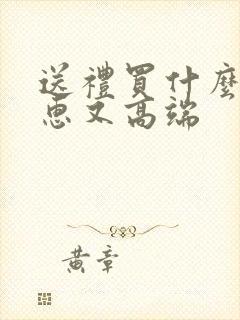 送禮買什麼
惠又高端
黃章